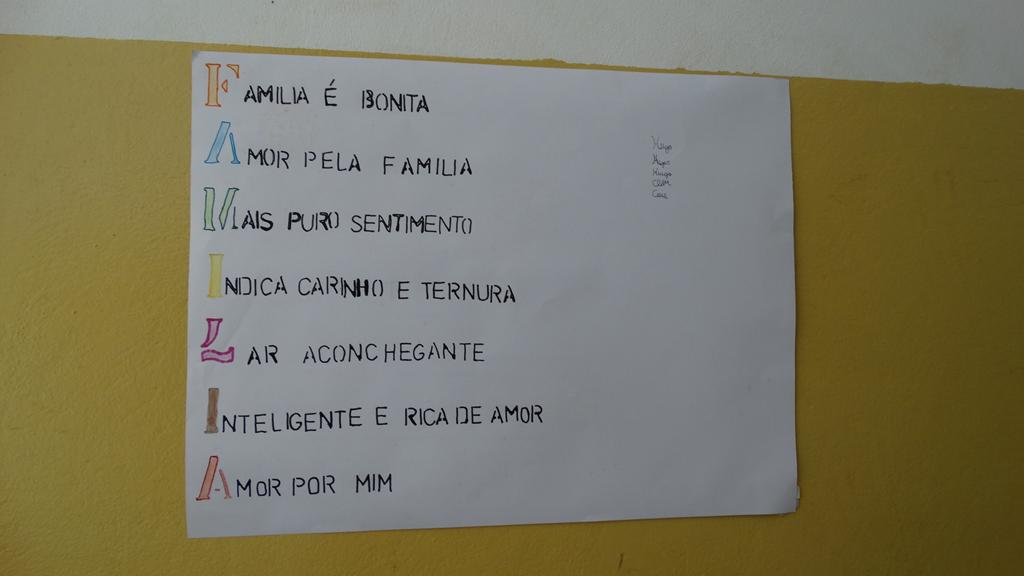 FAMILIA É BONITA
AMOR PELA FAMILIA
MAIS PURO SENTIMENTO
INDICA CARINHO E TERNURA
LAR ACONCHEGANTE
INTELIGENTE E RICA DE AMOR
AMOR POR MIM